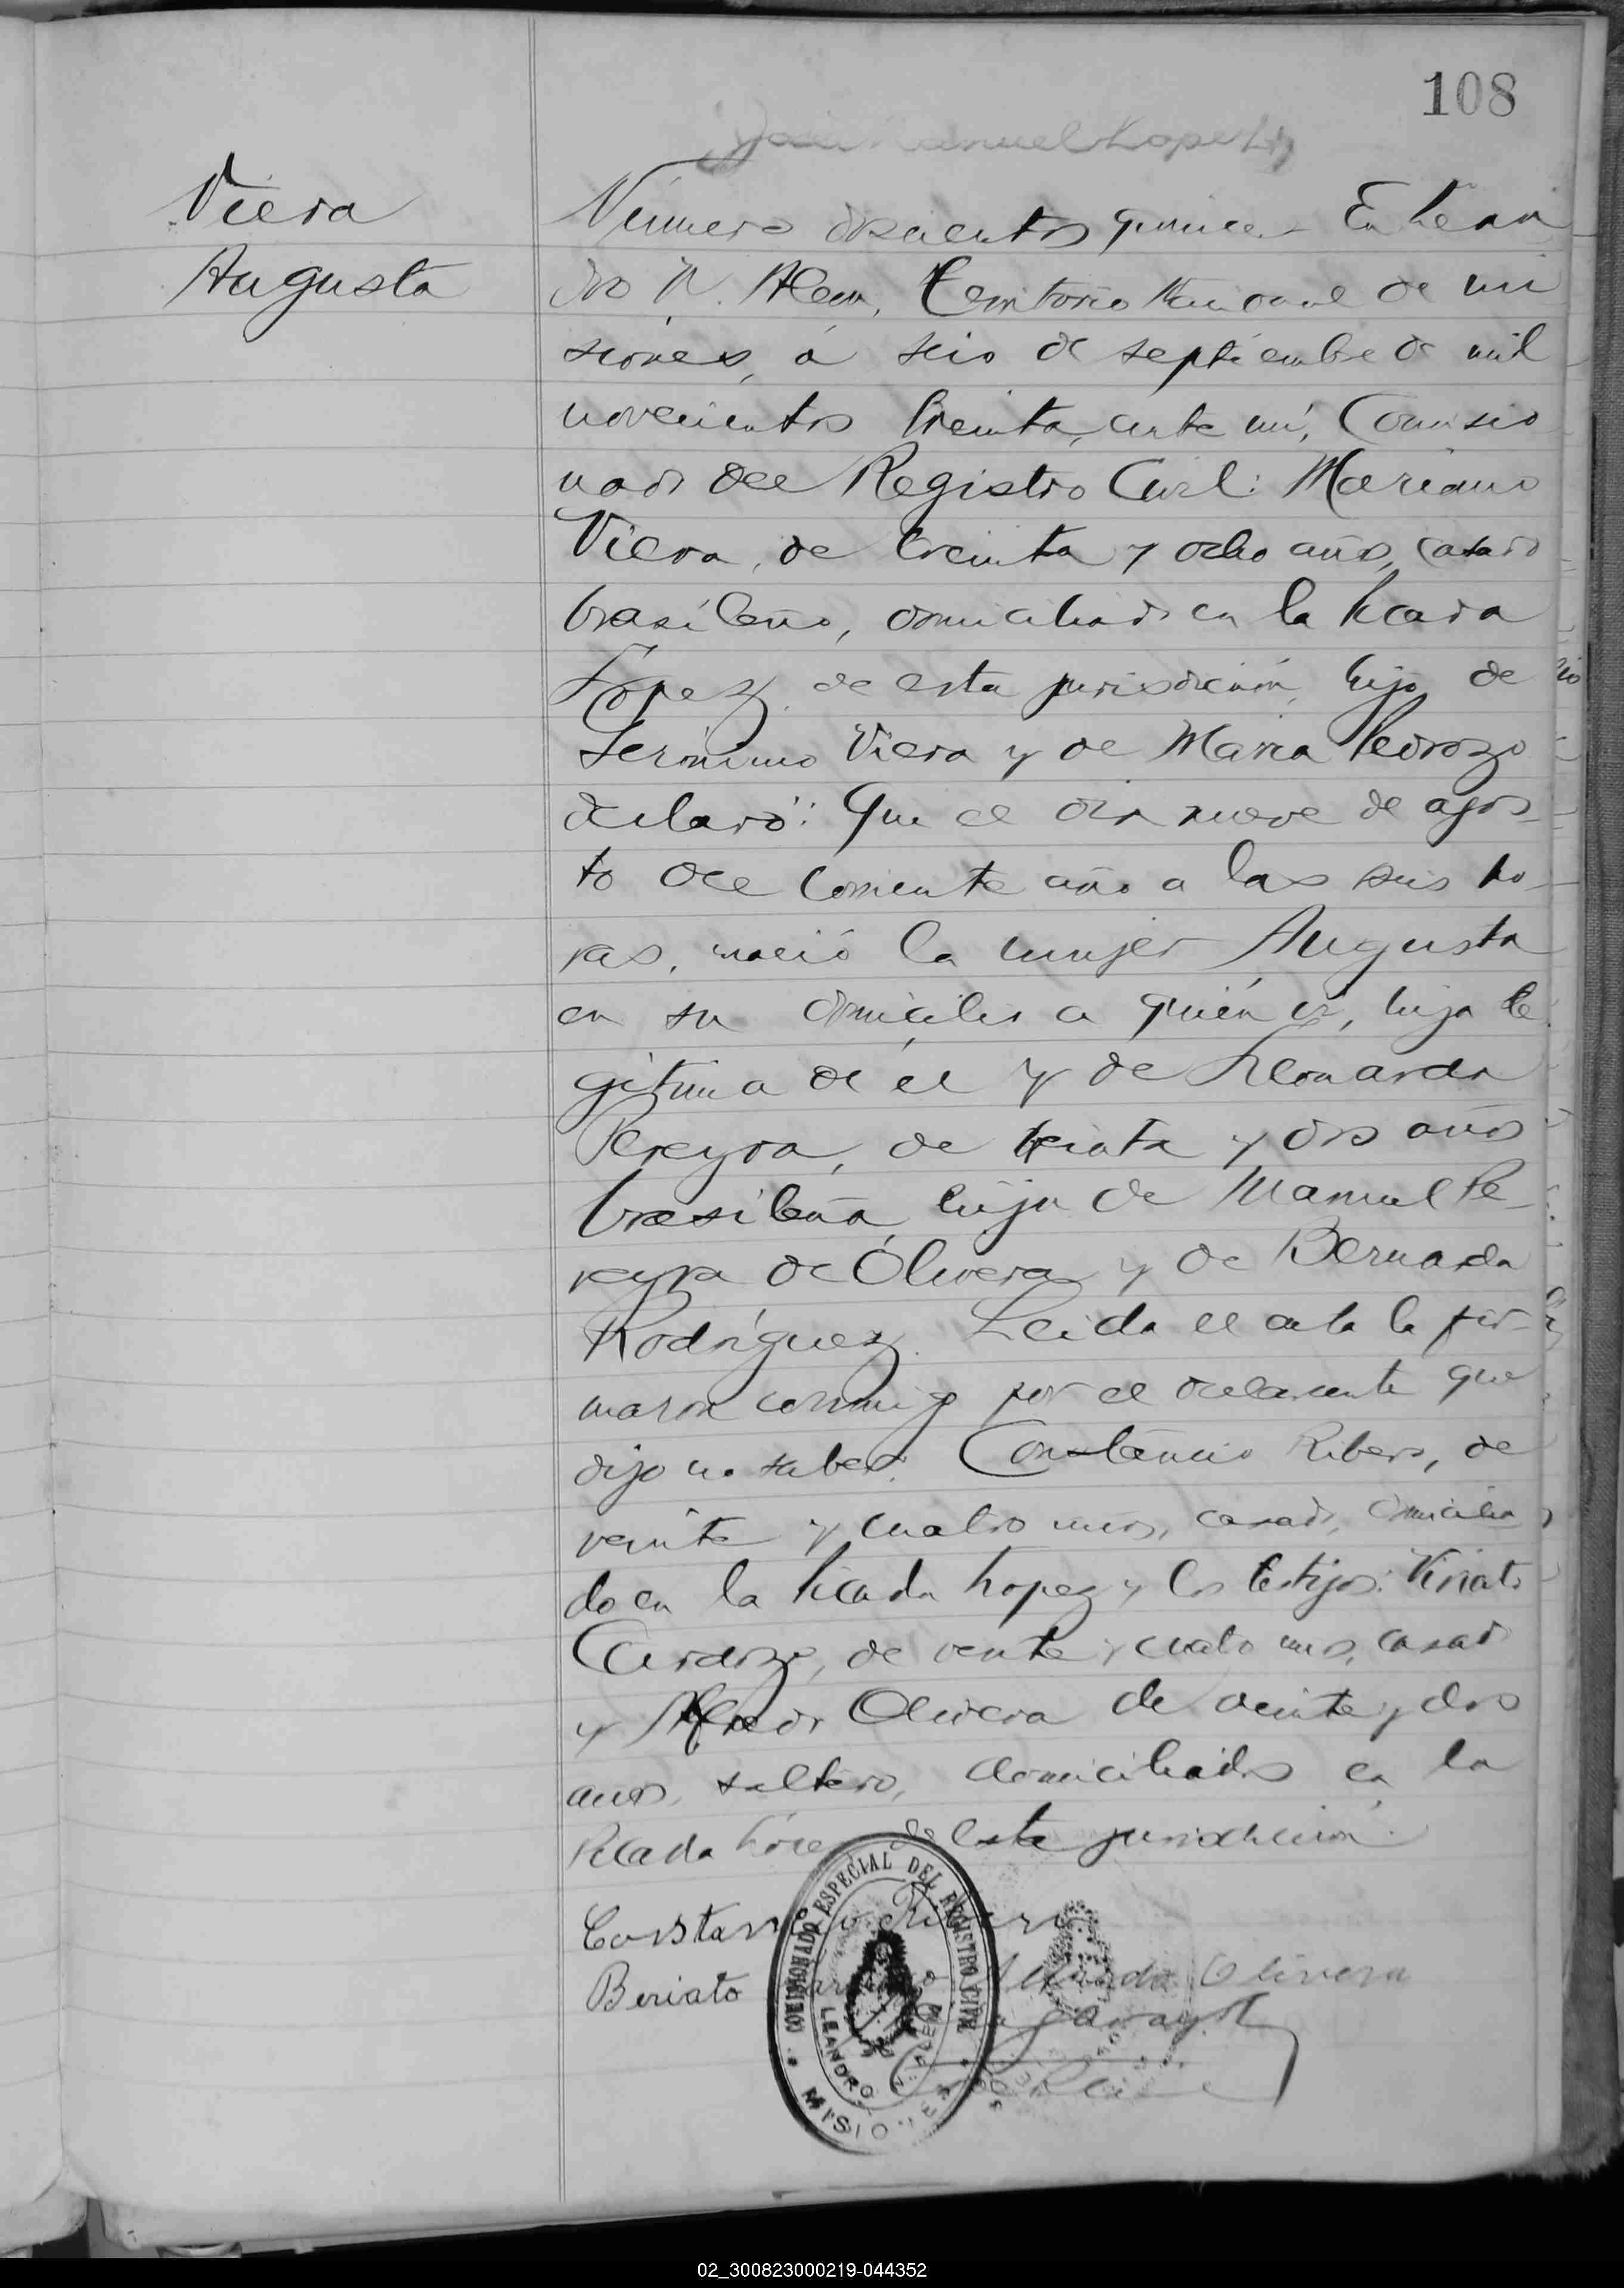 108
Viera
Augusta
Número doscientos quince. En Lean
dro N. Alem, Territorio Nacional de Mi
siones, á seis de septiembre de mil
novecientos treinta, ante mí, Comisio
nado del Registro Civil: Mariano
Viera, de treinta y ocho años, casado
brasileño, domiciliado en la Picada
López, de esta jurisdicción, hijo de
Gerónimo Viera y de Maria Pedrozo
declaró: Que el día nueve de agos-
to del corriente año a las seis ho-
ras, nació la mujer Augusta
en su domicilio a quién ví, hija le
gitima de él y de Leonarda
Pereyra, de treinta y dos años
brasileña, hija de Manuel Pe-
reyra de Olivera y de Bernarda
Rodríguez. Leida el acta la fir-
maron conmigo por el declarante que
dijo no saber: Constancio Ribero, de
veinte y cuatro años, casado, domicilia
do en la Picada Lopez y los testigos: Viriato
Cardozo, de veinte y cuatro años, casado
y Alfredo Olivera de veinte y dos
años, soltero, domiciliados en la
Picada López de esta jurisdicción.
Constancio Ribero
Beriato Olivera
COMISIONADO ESPECIAL DEL REGISTRO CIVIL
LEANDRO N. ALEM
MISIONES
02_300823000219-044352